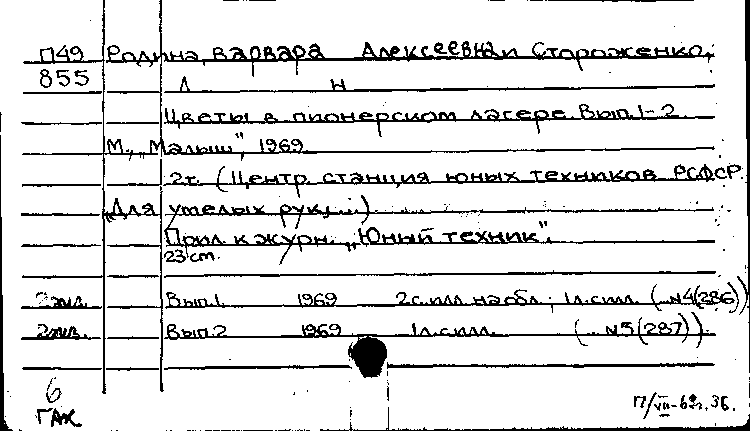 П49 Родина, Варвара Алексеевна и Стороженко,
855 Л Н
Цветы в пионерском лагере. Вып. 1-2
М., „Малыш", 1969.
2т. (Центр. станция юных техников РСФСР.
„Для умелых рук„...)
Прил. к журн. „Юный техник".
23 см.
2экз. Вып.1. 1969 2с.илл. на обл.; 1л.силл. (..N4(286))
2экз. Вып.2 1969 1л.силл. (..N5(287)).
6
ГАК